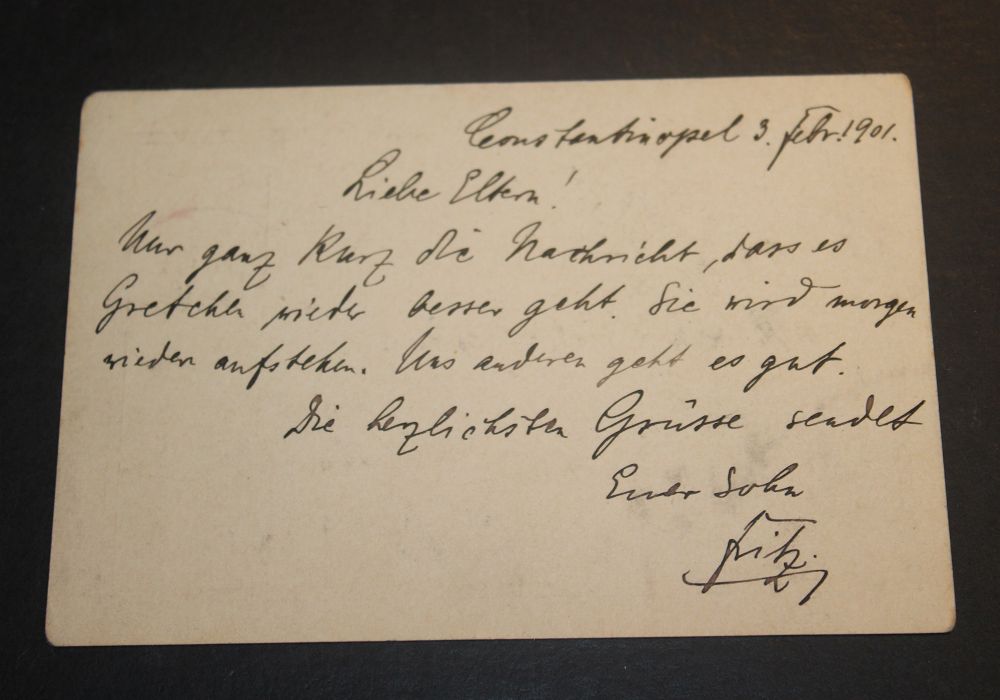 Constantinopel 3. Febr. 1901.
Liebe Eltern!
Nur ganz kurz die Nachricht, dass es
Gretchen wieder besser geht. Sie wird morgen
wieder aufstehen. Uns anderen geht es gut.
Die herzlichsten Grüsse sendet
Euer Sohn
Fritz.